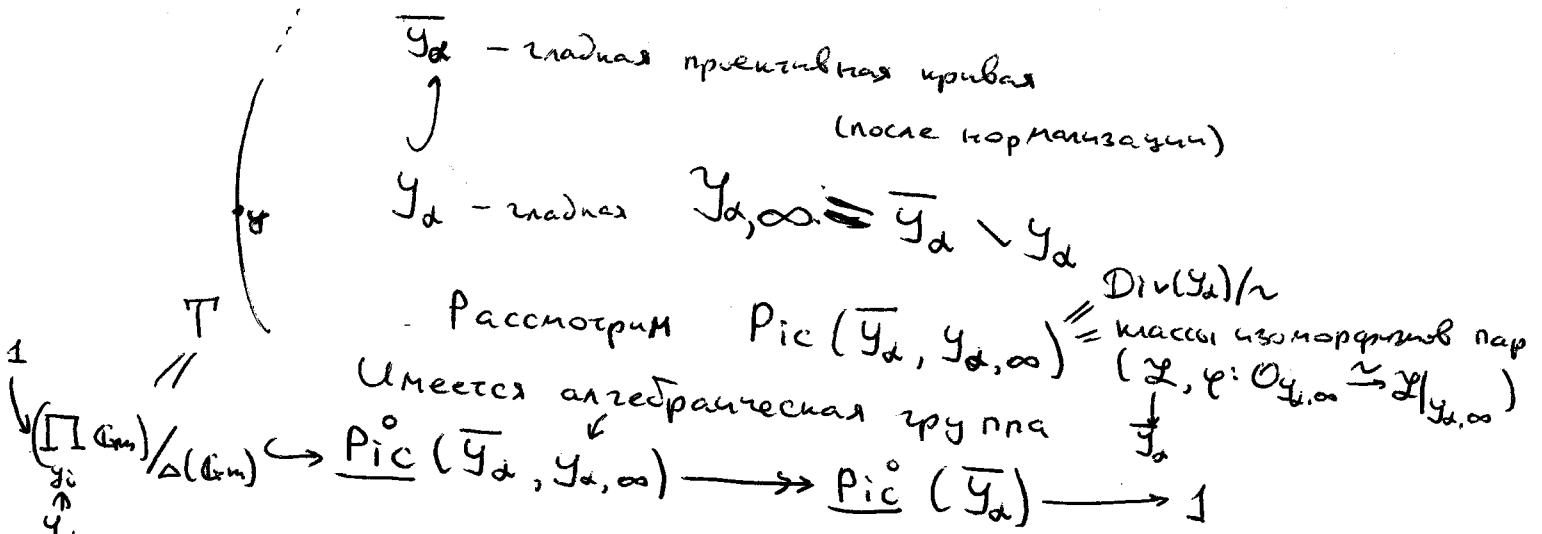 $\overline{Y_\alpha}$ – гладкая проективная кривая
(после нормализации)
$Y_\alpha$ – гладкая $Y_{\alpha,\infty} = \overline{Y_\alpha} \setminus Y_\alpha$
y
Рассмотрим $\mathrm{Pic}(\overline{Y_\alpha}, Y_{\alpha,\infty})$ = $\mathrm{Div}(Y_\alpha)/\sim$
= классы изоморфизмов пар
$(\mathcal{L}, \varphi: \mathcal{O}_{Y_{\alpha,\infty}} \xrightarrow{\sim} \mathcal{L}|_{Y_{\alpha,\infty}})$
↓
$\overline{Y_\alpha}$
Имеется алгебраическая группа
T
=
$1 \to (\prod_{y_i} \mathbb{G}_m)/\Delta(\mathbb{G}_m) \hookrightarrow \underline{\mathrm{Pic}}^\circ(\overline{Y_\alpha}, Y_{\alpha,\infty}) \twoheadrightarrow \underline{\mathrm{Pic}}^\circ(\overline{Y_\alpha}) \to 1$